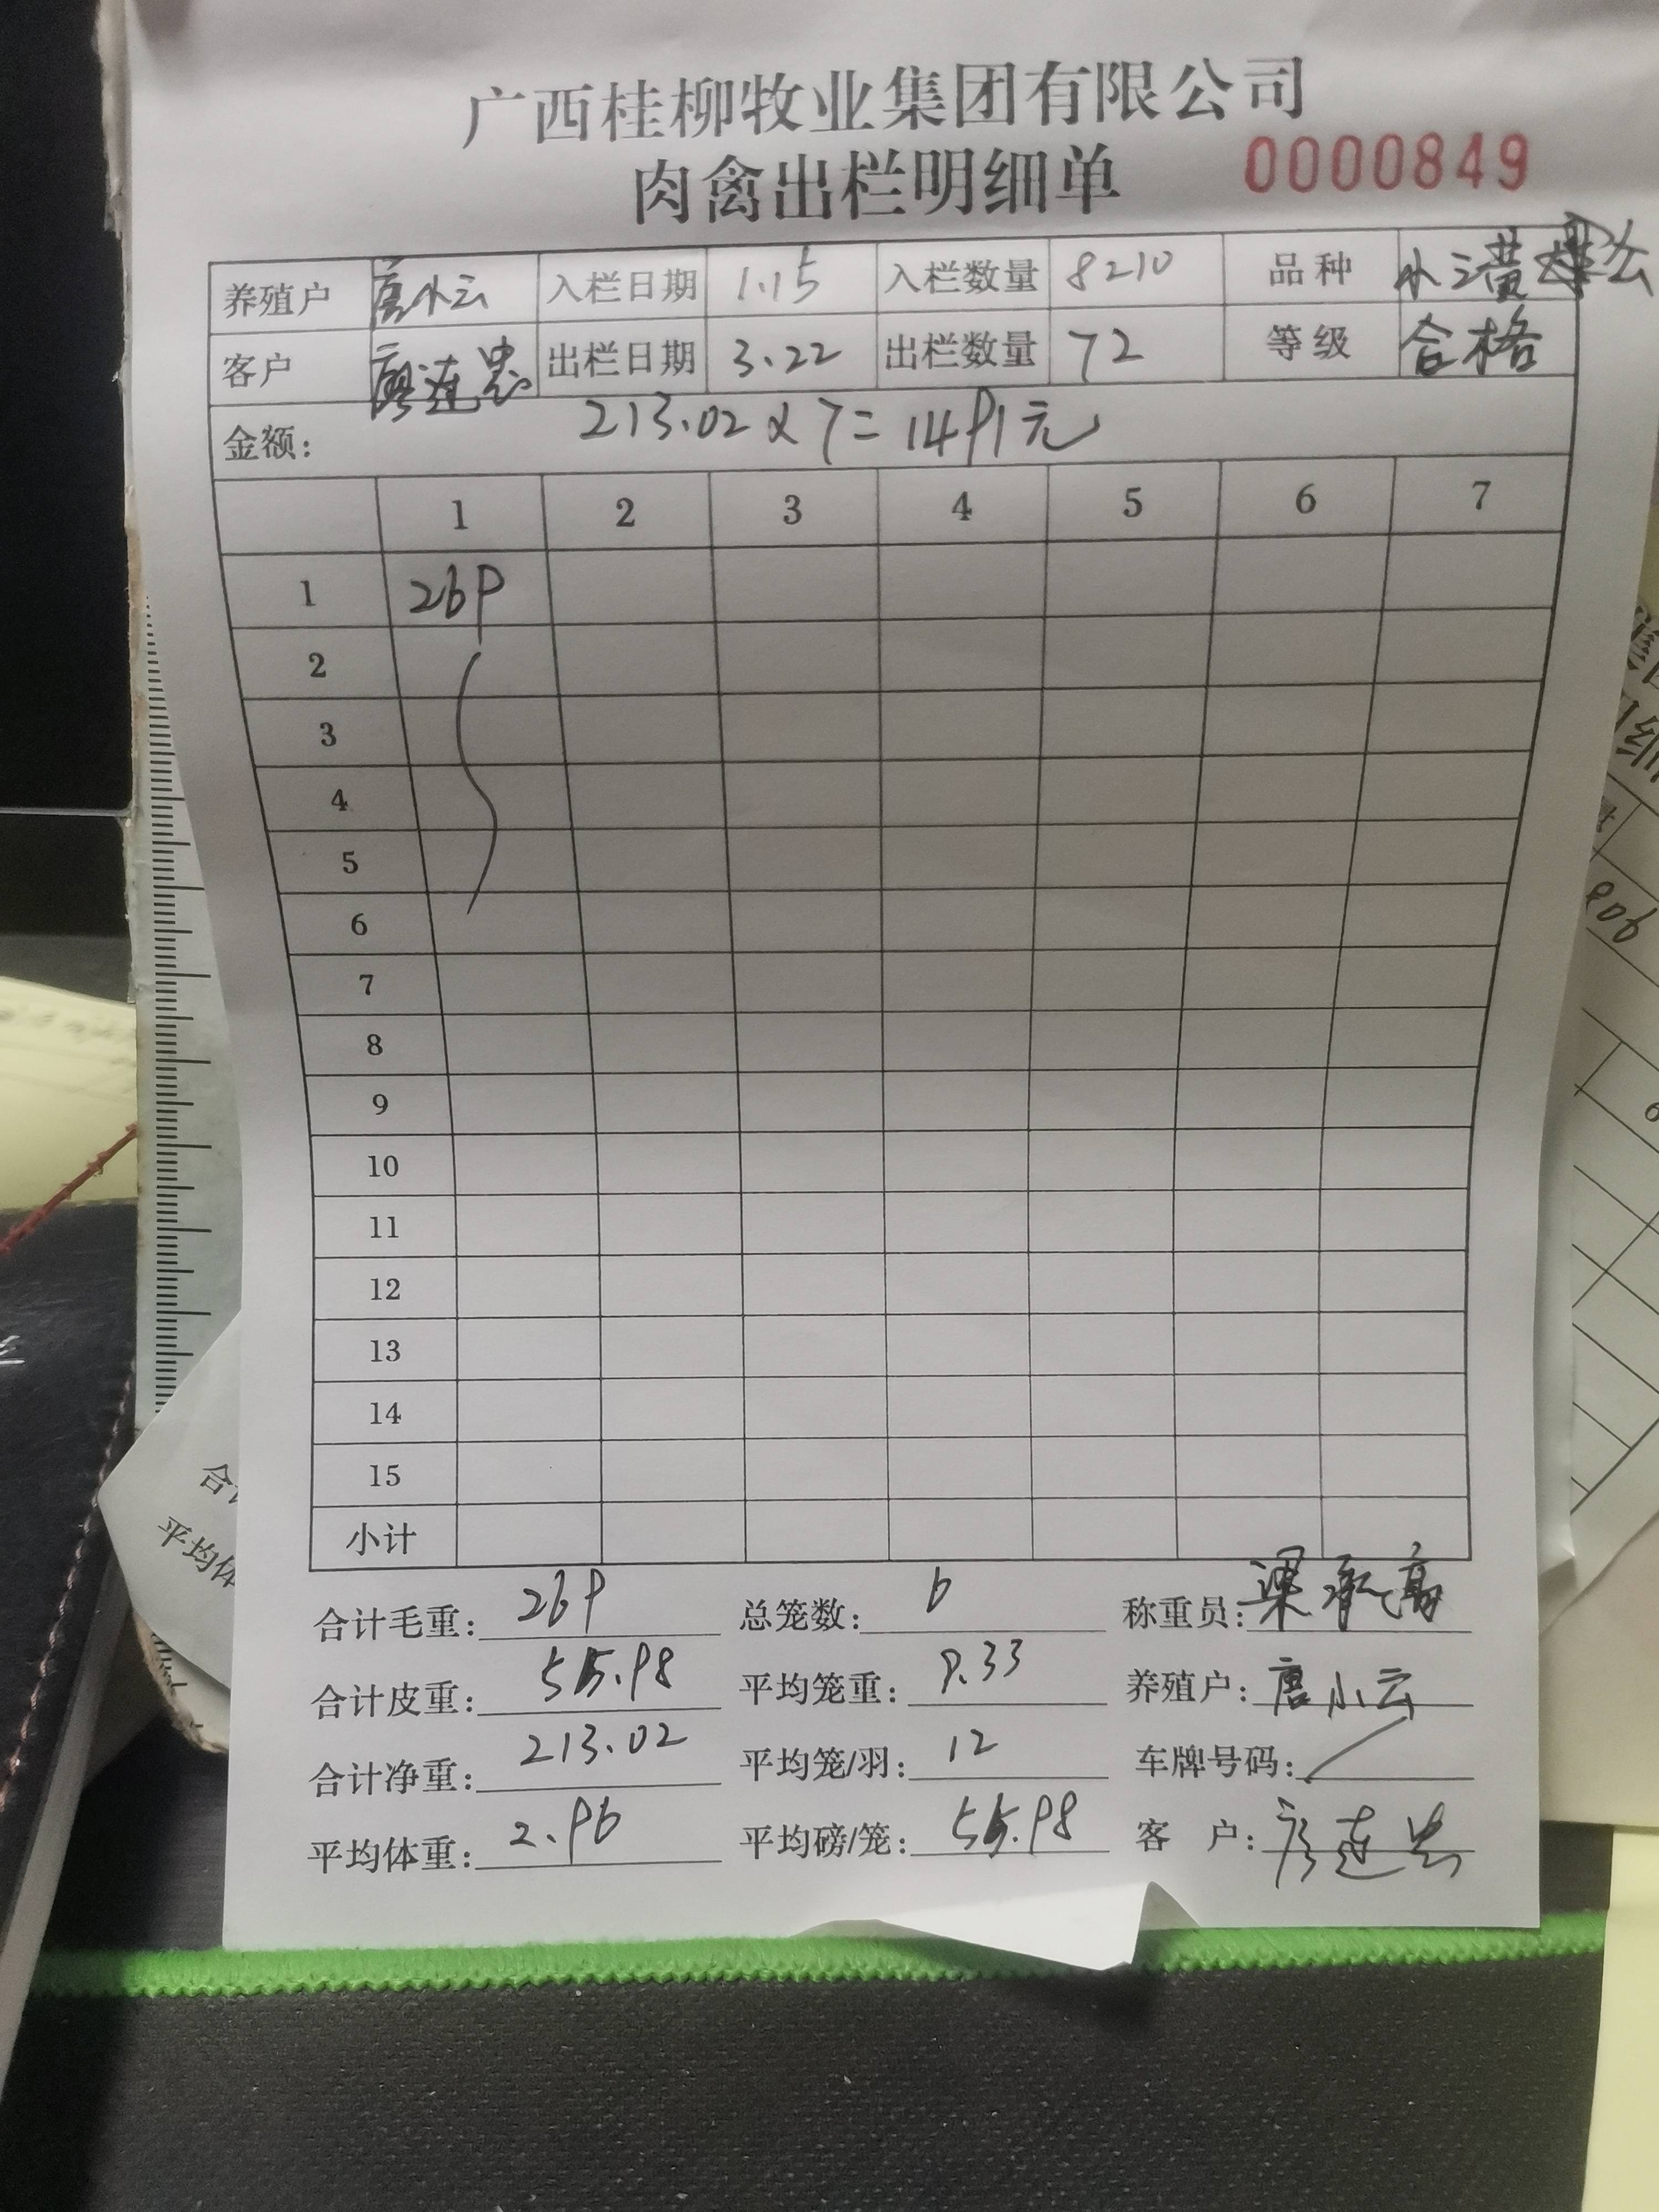 广西桂柳牧业集团有限公司
肉禽出栏明细单 0000849
养殖户 唐小云 入栏日期 1.15 入栏数量 8210 品种 小三黄 公
客户 廖连忠 出栏日期 3.22 出栏数量 72 等级 合格
金额: 213.02×7=1491元
1 2 3 4 5 6 7
1 269
2
3
4
5
6
7
8
9
10
11
12
13
14
15
小计
合计毛重: 269 总笼数: 6 称重员: 梁承高
合计皮重: 55.98 平均笼重: 9.33 养殖户: 唐小云
合计净重: 213.02 平均笼/羽: 12 车牌号码: /
平均体重: 2.96 平均磅/笼: 55.98 客 户: 廖连忠
合计
平均体
806
6